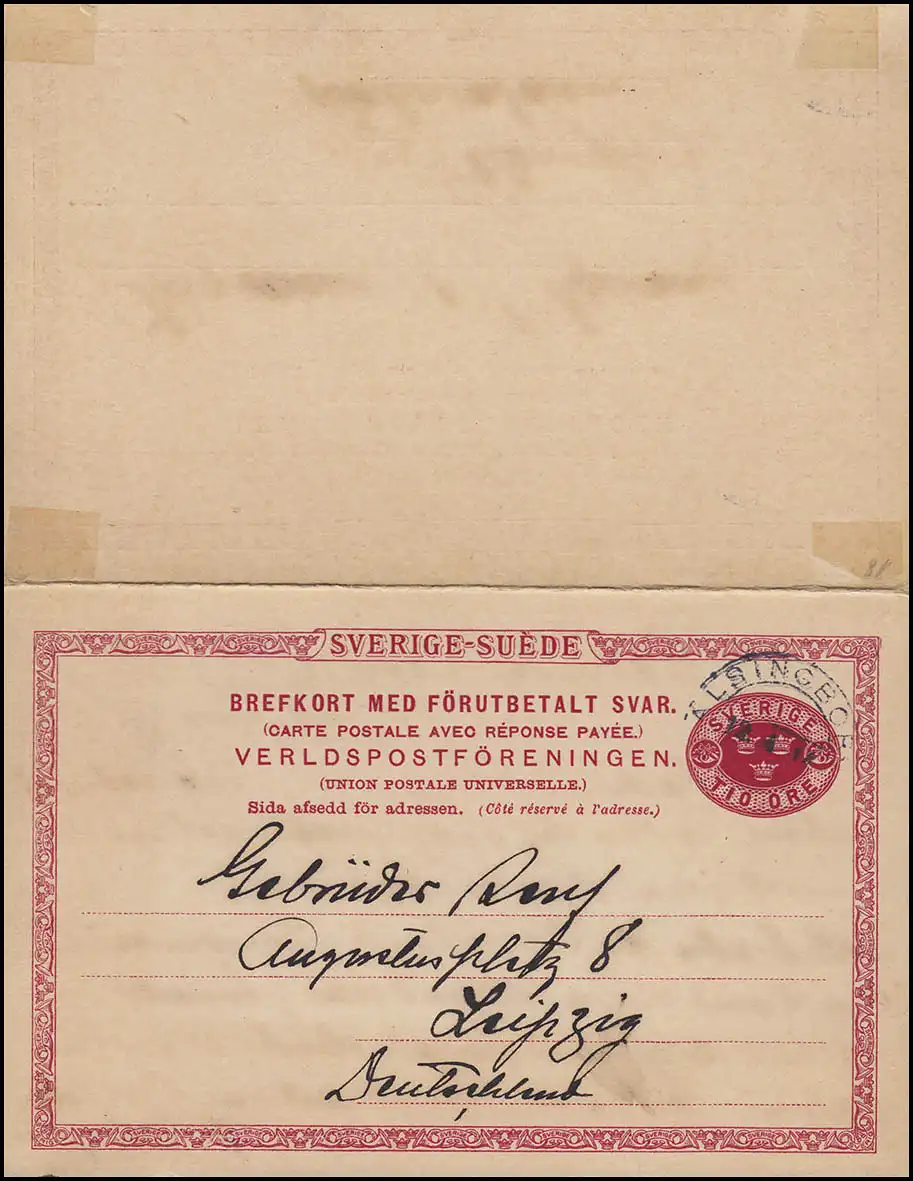 81
SVERIGE-SUÈDE
BREFKORT MED FÖRUTBETALT SVAR.
(CARTE POSTALE AVEC RÉPONSE PAYÉE.)
VERLDSPOSTFÖRENINGEN.
(UNION POSTALE UNIVERSELLE.)
Sida afsedd för adressen. (Côté réservé à l'adresse.)
SVERIGE
TIO ÖRE
Gebrüder
Augustusplatz 8
Leipzig
Deutschland